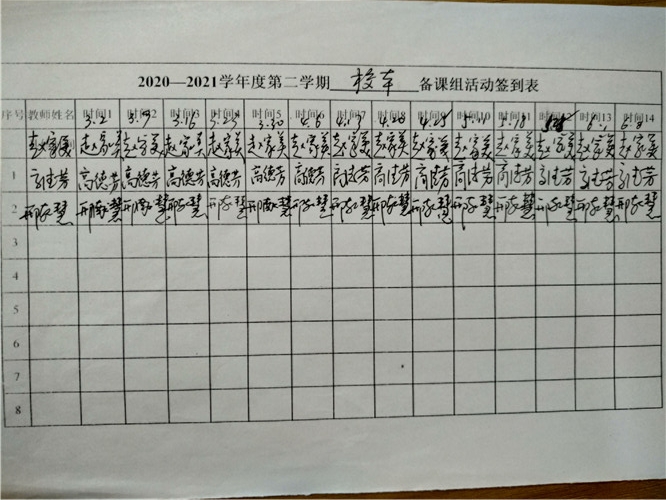 2020—2021学年度第二学期 校本 备课组活动签到表
序号 教师姓名 时间1 时间2 时间3 时间4 时间5 时间6 时间7 时间8 时间9 时间10 时间11 时间13 时间14
3.2 3.9 3.16 3.30 4.6 5.18 6.1 6.8
赵家美 赵家美 赵家美 赵家美 赵家美 赵家美 赵家美 赵家美 赵家美 赵家美 赵家美 赵家美 赵家美 赵家美 赵家美
1 高德芳 高德芳 高德芳 高德芳 高德芳 高德芳 高德芳 高德芳 高德芳 高德芳 高德芳 高德芳 高德芳 高德芳 高德芳
2 邢家慧 邢家慧 邢家慧 邢家慧 邢家慧 邢家慧 邢家慧 邢家慧 邢家慧 邢家慧 邢家慧 邢家慧 邢家慧 邢家慧 邢家慧
3
4
5
6
7
8